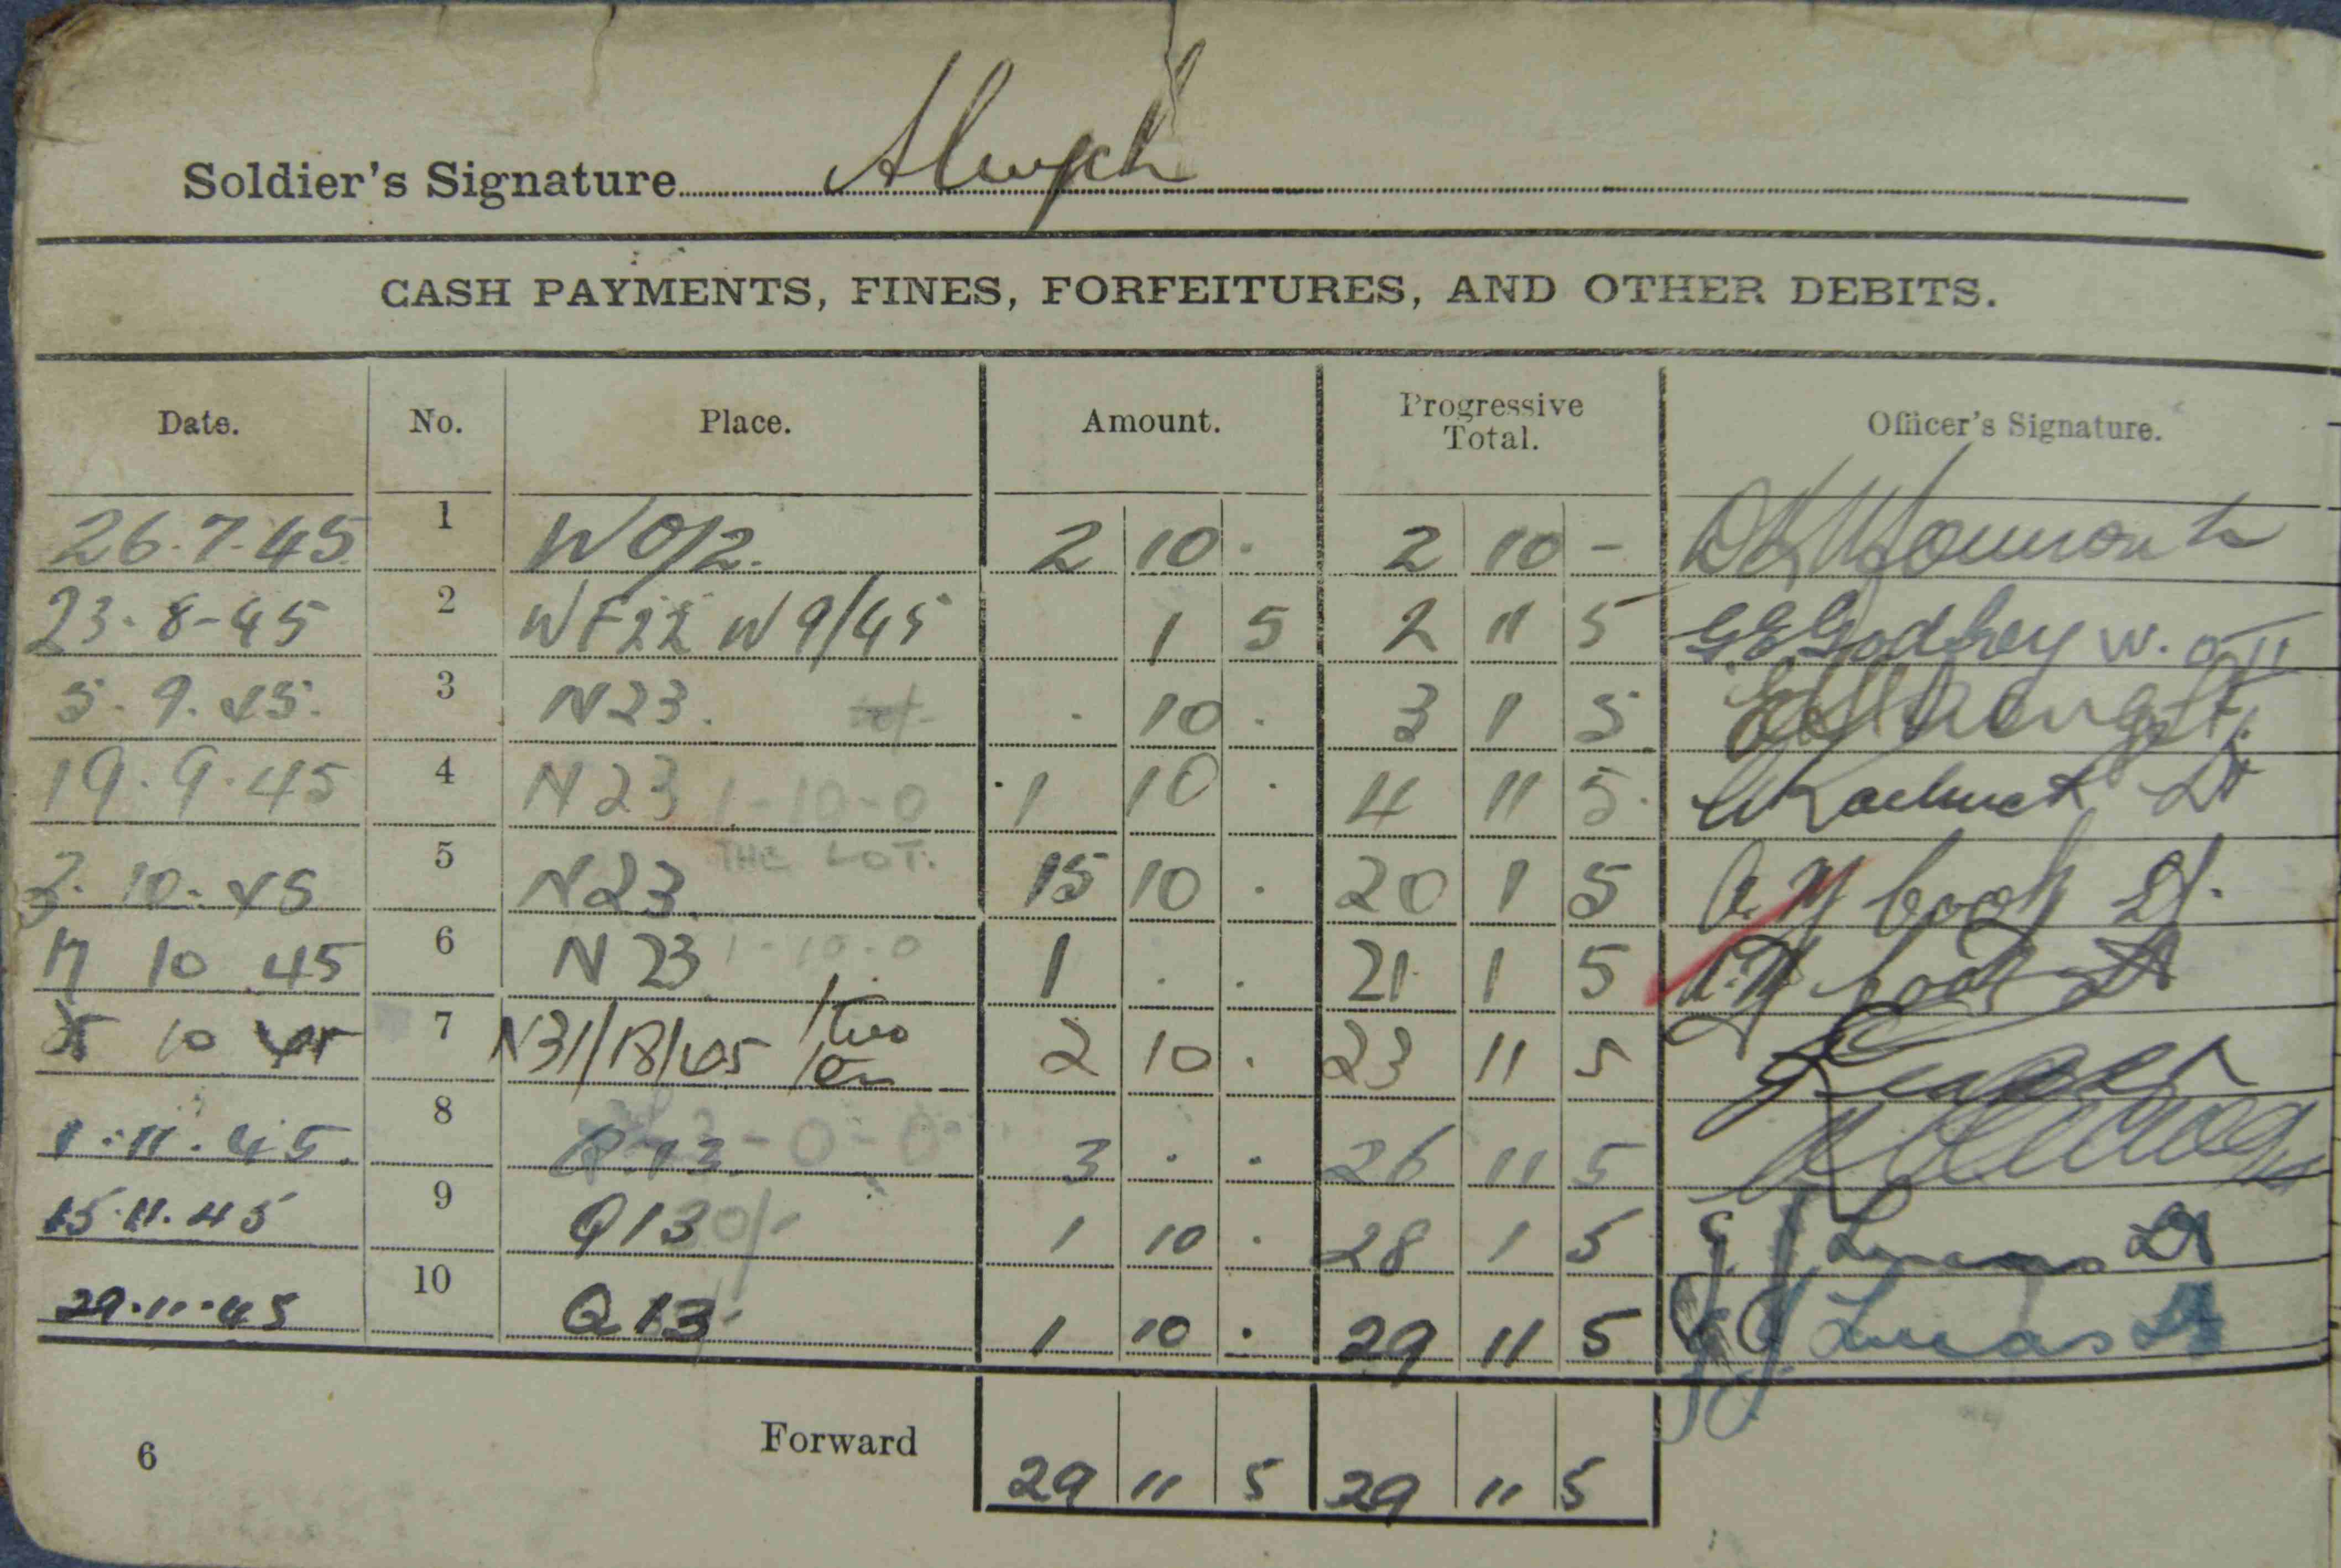 Soldier's Signature
CASH PAYMENTS, FINES, FORFEITURES, AND OTHER DEBITS.
Date. No. Place. Amount. Progressive Total. Officer's Signature.
26.7.45 1 2 10 . 2 10 -
23.8-45 2 WF22 W9/45 1 5 2 11 5 G E Godfrey W.O II
5.9.45. 3 N23. . 10 . 3 1 5
19.9.45 4 N23 1-10-0 1 10 . 4 11 5 Lt
3.10.45 5 N23. THE LOT. 15 10 . 20 1 5 Lt.
17 10 45 6 N23 1-10-0 1 . . 21 1 5 Lt
10 45 7 N31/18/45 two 2 10 . 23 11 5
1.11.45. 8 3-0-0 3 . . 26 11 5
15.11.45 9 Q13 30/- 1 10 . 28 1 5 Lucas Lt
29.11.45 10 Q13 1 10 . 29 11 5 Lucas Lt
Forward 29 11 5 29 11 5
6